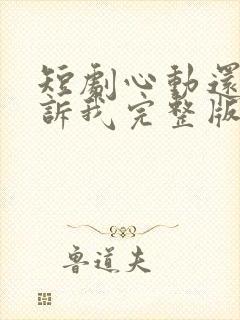 短劇心動還
訴我完整版
魯道夫